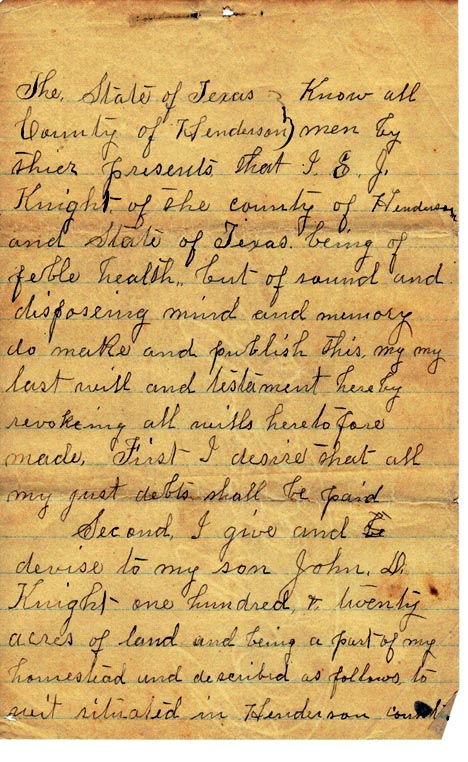 The, State of Texas } Know all
County of Henderson } men by
thier presents that I. E. J.
Knight of the county of Henderson
and State of Texas. being of
feble health,, but of sound and
disposeing mind and memory
do make and publish this, my my
last will and testament hereby
revokeing all wills heretofore
made, First I desire that all
my just debts shall be paid
Second, I give and
devise to my son John, D.
Knight one hundred, & twenty
acres of land and being a part of my
homestead and described as follows, to
wit situated in Henderson count